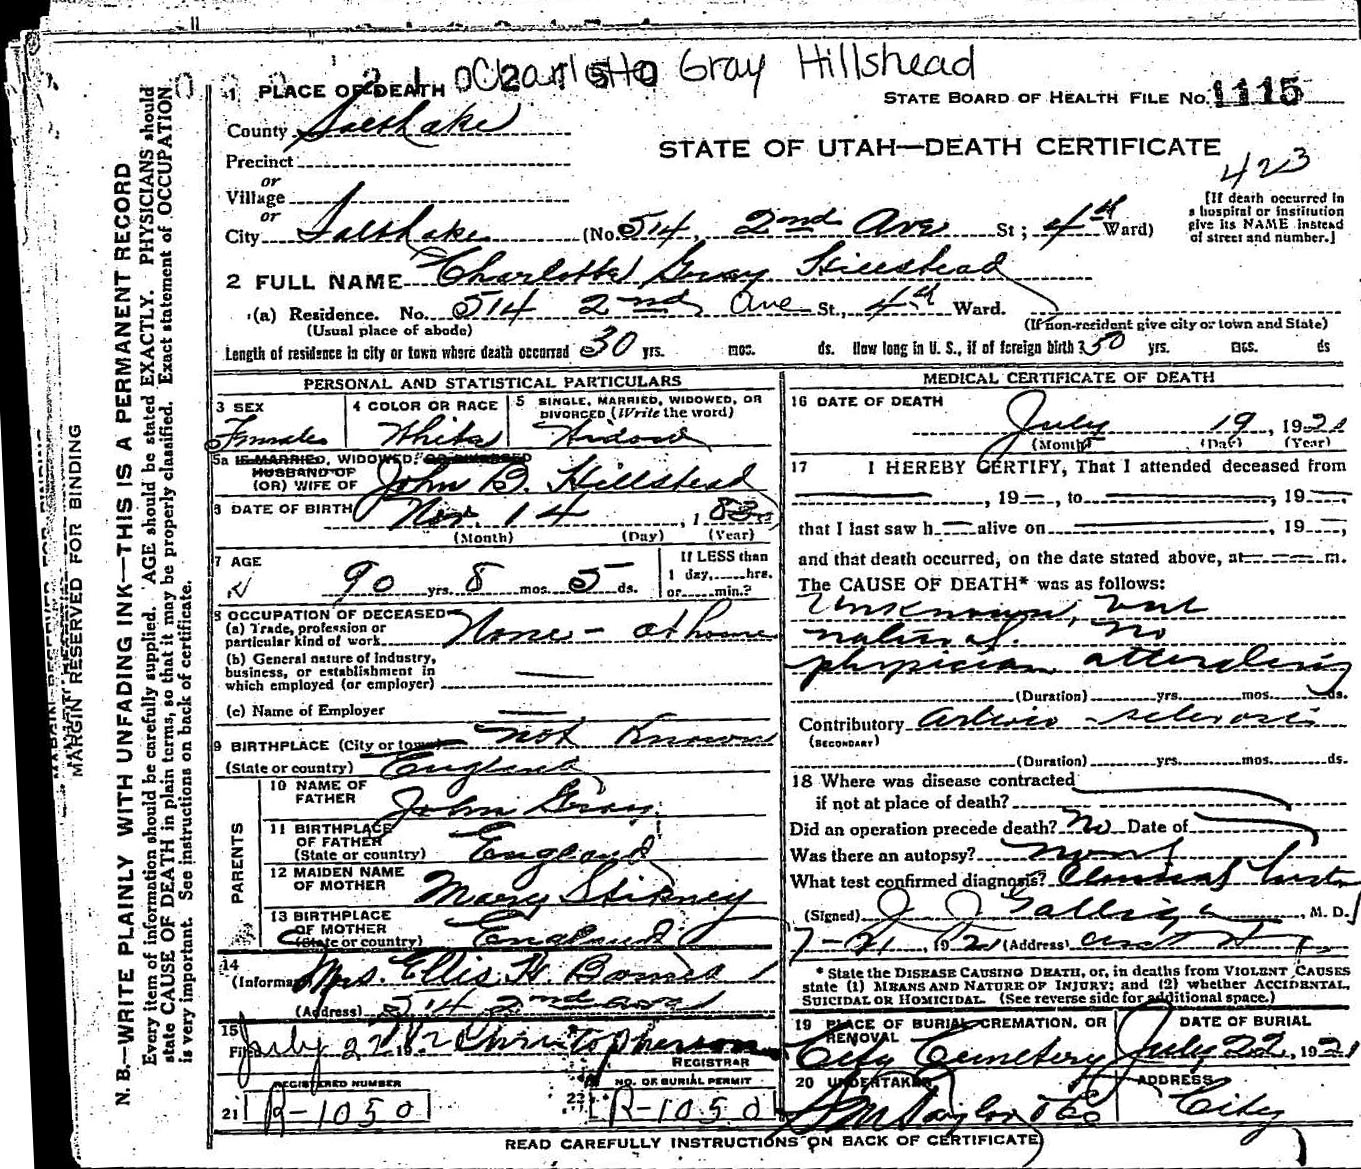 Charlotte Gray Hillshead
1 PLACE OF DEATH
STATE BOARD OF HEALTH FILE No. 1115
County Saltlake
STATE OF UTAH—DEATH CERTIFICATE
Precinct
423
or
Village
or
City Saltlake (No. 514, 2nd Ave St; 4th Ward)
[If death occurred in
a hospital or institution
give its NAME instead
of street and number.]
2 FULL NAME Charlotte Gray Hillstead
(a) Residence. No. 514 2nd Ave St., 4th Ward.
(Usual place of abode) (If non-resident give city or town and State)
Length of residence in city or town where death occurred 30 yrs. mos. ds. How long in U. S., if of foreign birth? 50 yrs. mos. ds
PERSONAL AND STATISTICAL PARTICULARS
3 SEX Female
4 COLOR OR RACE White
5 SINGLE, MARRIED, WIDOWED, OR
DIVORCED (Write the word)
Widow
5a IF MARRIED, WIDOWED, OR DIVORCED
HUSBAND OF
(OR) WIFE OF John B. Hillstead
6 DATE OF BIRTH Nov. 14, 1
(Month) (Day) (Year)
7 AGE 90 yrs. 8 mos. 5 ds.
If LESS than
1 day,....hrs.
or....min.?
8 OCCUPATION OF DECEASED
(a) Trade, profession or
particular kind of work None - at home
(b) General nature of industry,
business, or establishment in
which employed (or employer)
(c) Name of Employer
9 BIRTHPLACE (City or town) not Known
(State or country) England
PARENTS
10 NAME OF
FATHER John Gray
11 BIRTHPLACE
OF FATHER
(State or country) England
12 MAIDEN NAME
OF MOTHER Mary Stikney
13 BIRTHPLACE
OF MOTHER
(State or country) England
14
(Informant) Mrs. Ellis H.
(Address) 514 2nd ave
15
Filed July 22 19 Christopherson
REGISTRAR
REGISTERED NUMBER
21 R-1050
NO. OF BURIAL PERMIT
22 R-1050
MEDICAL CERTIFICATE OF DEATH
16 DATE OF DEATH
July 19, 1921
(Month) (Day) (Year)
17 I HEREBY CERTIFY, That I attended deceased from
, 19 , to , 19 ,
that I last saw h alive on , 19 ,
and that death occurred, on the date stated above, at m.
The CAUSE OF DEATH* was as follows:
Unknown, but
natural. No
physician attending
(Duration) yrs. mos. ds.
Contributory arterio-sclerosis
(SECONDARY)
(Duration) yrs. mos. ds.
18 Where was disease contracted
if not at place of death?
Did an operation precede death? No Date of
Was there an autopsy? None
What test confirmed diagnosis? Clinical
(Signed) J. J. Galligan, M. D.
7-21, 1921 (Address)
* State the DISEASE CAUSING DEATH, or, in deaths from VIOLENT CAUSES
state (1) MEANS AND NATURE OF INJURY; and (2) whether ACCIDENTAL,
SUICIDAL OR HOMICIDAL. (See reverse side for additional space.)
19 PLACE OF BURIAL, CREMATION, OR
REMOVAL
City Cemetery
DATE OF BURIAL
July 22, 1921
20 UNDERTAKER
S M Taylor & Co
ADDRESS
City
READ CAREFULLY INSTRUCTIONS ON BACK OF CERTIFICATE
MARGIN RESERVED FOR BINDING
N. B.—WRITE PLAINLY WITH UNFADING INK—THIS IS A PERMANENT RECORD
Every item of information should be carefully supplied. AGE should be stated EXACTLY. PHYSICIANS should
state CAUSE OF DEATH in plain terms, so that it may be properly classified. Exact statement of OCCUPATION
is very important. See instructions on back of certificate.